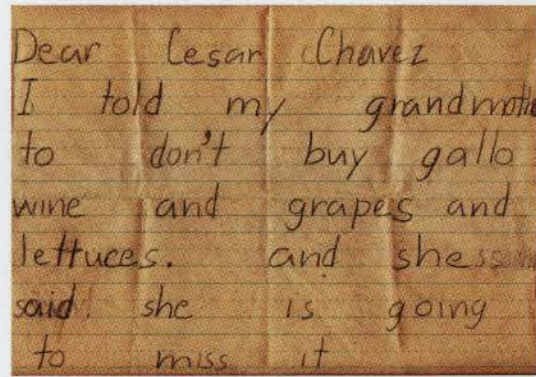 Dear Cesar Chavez
I told my grandmothe
to don't buy gallo
wine and grapes and
lettuces. and she
said. she is going
to miss it